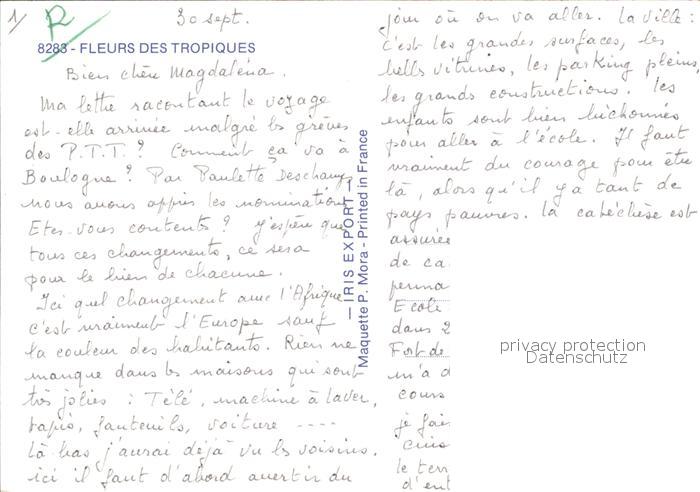 1/ R 30 sept.
8283 - FLEURS DES TROPIQUES
Bien chère Magdaléna.
Ma lettre racontant le voyage
est-elle arrivée malgré les grèves
des P.T.T.? Comment ça va à
Boulogne? Par Paulette Deschamps
nous avons appris les nominations
Etes-vous contents? J'espère que
tous ces changements, ce sera
pour le bien de chacune.
Ici quel changement avec l'Afrique
c'est vraiment l'Europe sauf
la couleur des habitants. Rien ne
manque dans les maisons qui sont
très jolies : Télé, machine à laver,
tapis, fauteuils, voiture ----
Là bas j'aurai déjà vu les voisins.
ici il faut d'abord avertir du
— IRIS EXPORT 1
Maquette P. Mora - Printed in France
jour où on va aller. La ville :
c'est les grandes surfaces, les
bells vitrines, les parking pleins,
les grands constructions. les
enfants sont bien bichonnés
pour aller à l'école. Il faut
vraiment du courage pour être
là, alors qu'il y a tant de
pays pauvres. la catéchèse est
assurée
de ca
perma
Ecole
dans 2
Fort de
m'a d
cours
je fais
cuis
le terr
d'ent
privacy protection
Datenschutz